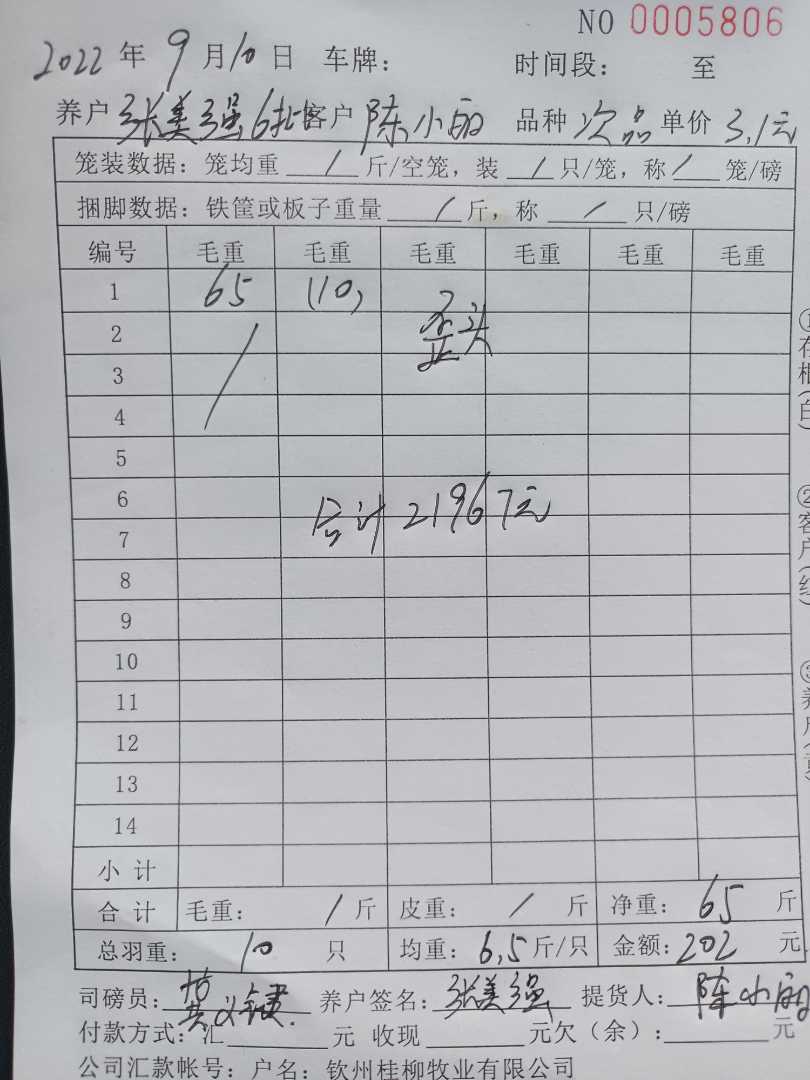 NO 0005806
2022 年 9 月 10 日 车牌： 时间段： 至
养户 张美强6批 客户 陈小丽 品种 次品 单价 3.1元
笼装数据：笼均重 / 斤/空笼，装 / 只/笼，称 / 笼/磅
捆脚数据：铁筐或板子重量 / 斤，称 / 只/磅
编号 毛重 毛重 毛重 毛重 毛重 毛重
1 65 (10)
2 歪头
3
4
5
6
合计21967元
7
8
9
10
11
12
13
14
小 计
合 计 毛重： / 斤 皮重： / 斤 净重： 65 斤
总羽重： 10 只 均重： 6.5 斤/只 金额：202 元
司磅员： 养户签名：张美强 提货人：陈小丽
付款方式：汇 元 收现 元欠（余）： 元
公司汇款帐号：户名：钦州桂柳牧业有限公司